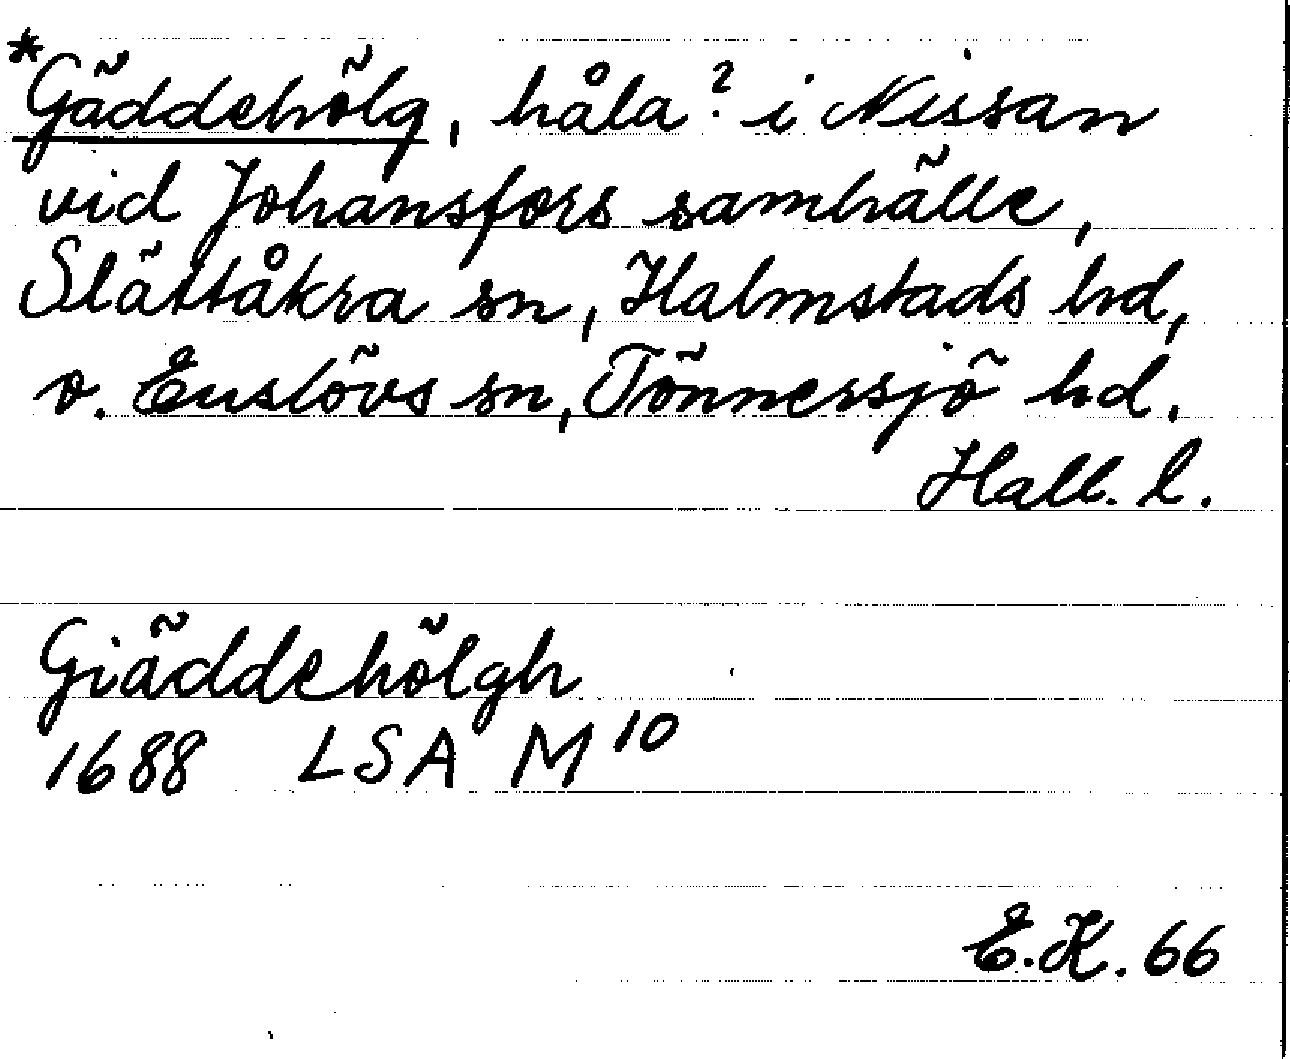 *Gäddehölg, håla? i Nissan
vid Johansfors samhälle,
Slättåkra sn, Halmstads hd,
o. Enslövs sn, Tönnersjö hd.
Hall. l.
Giäddehölgh
1688 LSA M 10
E.K. 66